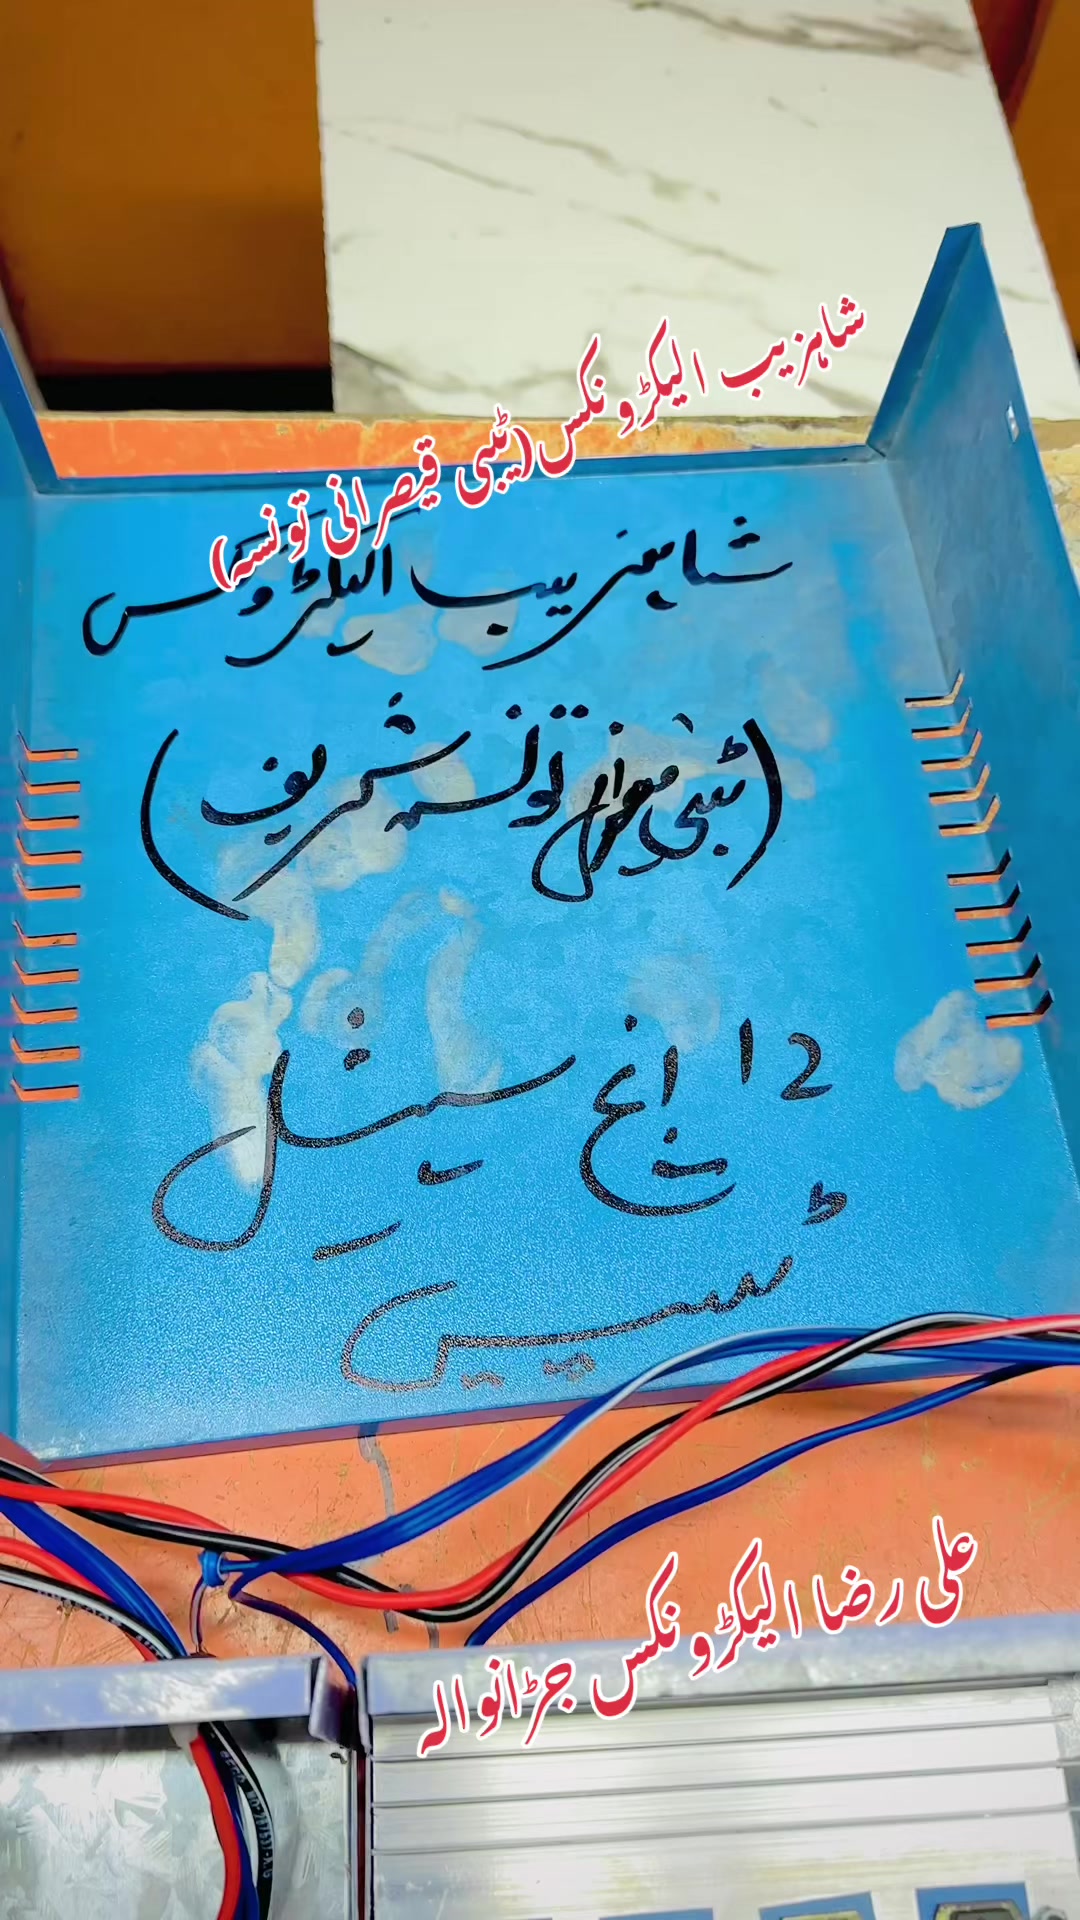 شاہزیب الیکڑونکس(ٹبی قیصرانی تونسہ)
شاہزیب الیکڑونکس
(ٹبی تونسہ شریف)
12 انچ سپیشل
ٹیسپیس
علی رضا الیکڑونکس جڑانوالہ